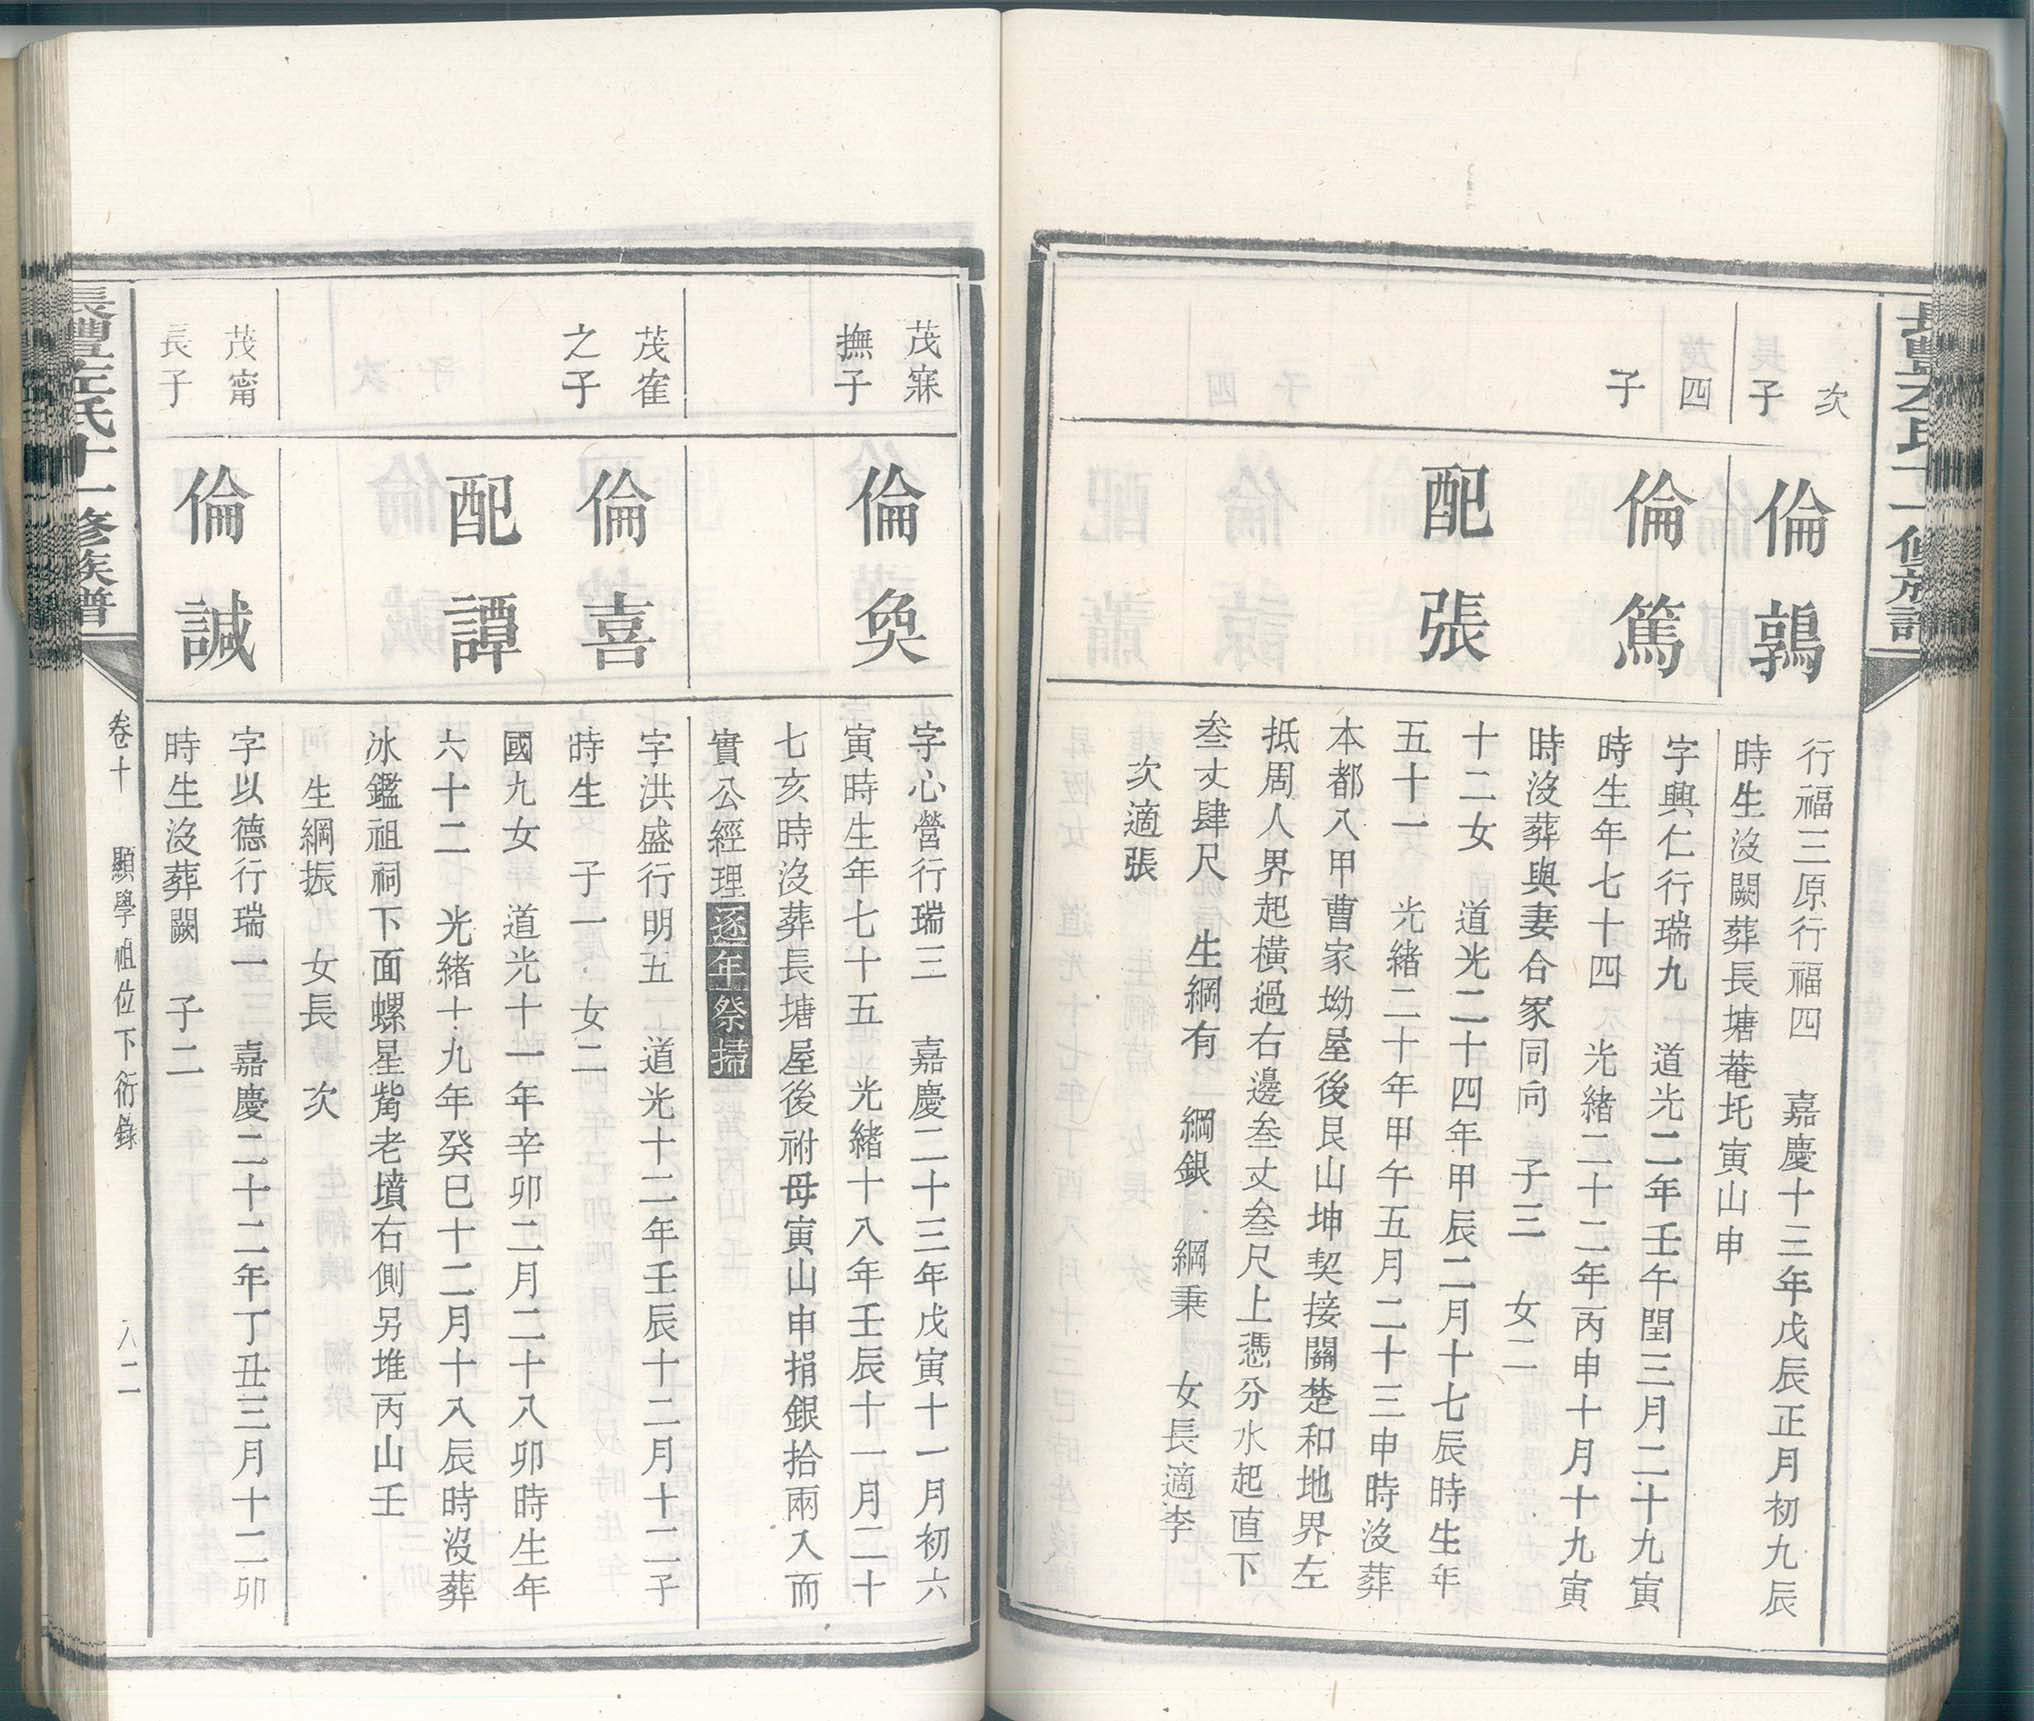 次
子
倫鶉
行福三原行福四　嘉慶十三年戊辰正月初九辰
時生沒闕葬長塘菴圫寅山申
四
子
倫篤
字興仁行瑞九　道光二年壬午閏三月二十九寅
時生年七十四　光緒二十二年丙申十月十九寅
時沒葬與妻合冢同向　子三　女二
配張
十二女　道光二十四年甲辰二月十七辰時生年
五十一　光緒二十年甲午五月二十三申時沒葬
本都八甲曹家坳屋後艮山坤契接關楚和地界左
抵周人界起橫過右邊叁丈叁尺上憑分水起直下
叁丈肆尺　生綱有　綱銀　綱秉　女長適李
次適張
茂寐
撫子
倫奐
字心營行瑞三　嘉慶二十三年戊寅十一月初六
寅時生年七十五　光緒十八年壬辰十一月二十
七亥時沒葬長塘屋後祔母寅山申捐銀拾兩入而
實公經理逐年祭掃
茂隺
之子
倫喜
字洪盛行明五　道光十二年壬辰十二月十二子
時生　子一　女二
配譚
國九女　道光十一年辛卯二月二十八卯時生年
六十二　光緒十九年癸巳十二月十八辰時沒葬
冰鑑祖祠下面螺星觜老墳右側另堆丙山壬
生綱振　女長　次
茂甯
長子
倫諴
字以德行瑞一　嘉慶二十二年丁丑三月十二卯
時生沒葬闕　子二
長豊左氏十一修族譜
卷十　顯學祖位下衍錄　八二